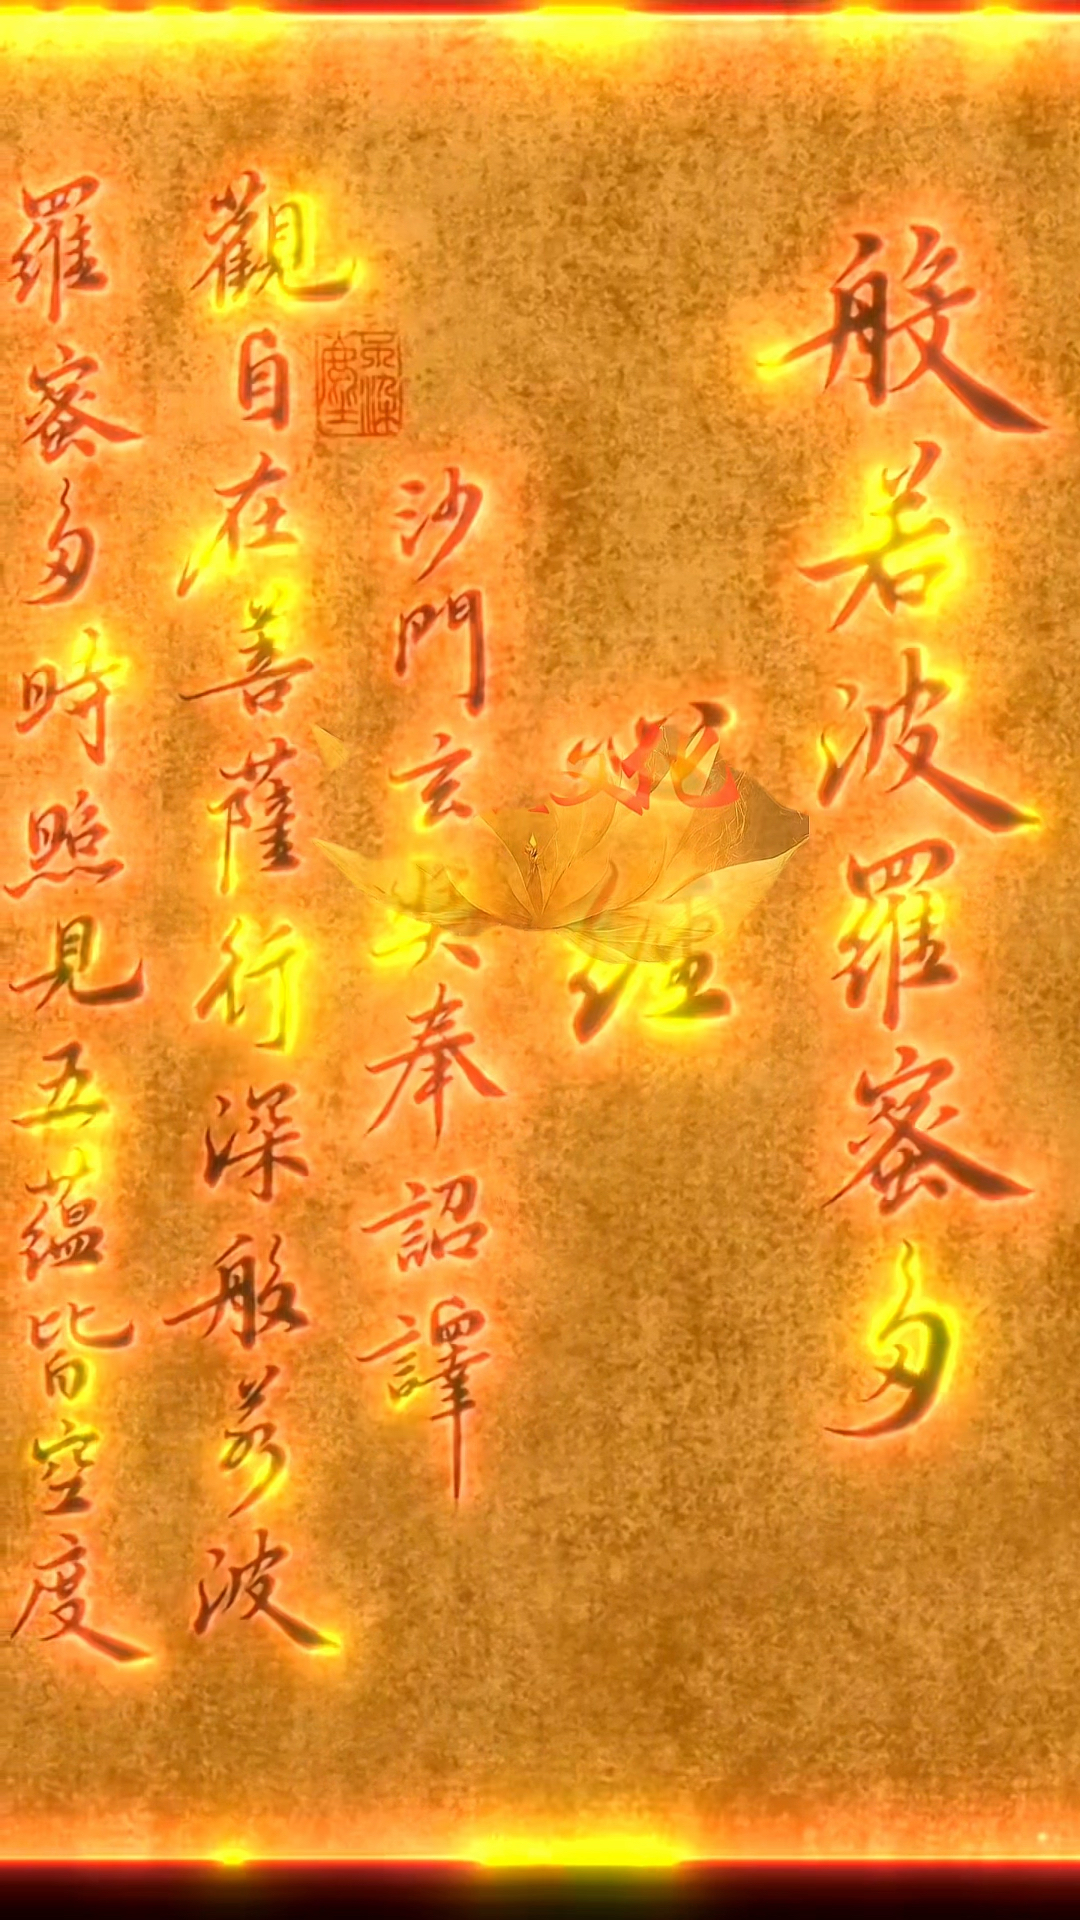 般若波羅蜜多
經
沙門玄奘奉詔譯
觀自在菩薩行深般若波
羅蜜多時照見五蘊皆空度